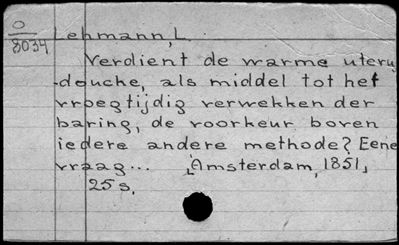 O
8034
Lehmann, L.
Verdient de warme uterus
-douche, als middel tot het
vroegtijdig verwekken der
baring, de voorkeur boven
iedere andere methode? Eene
vraag... [Amsterdam, 1851]
25 s.